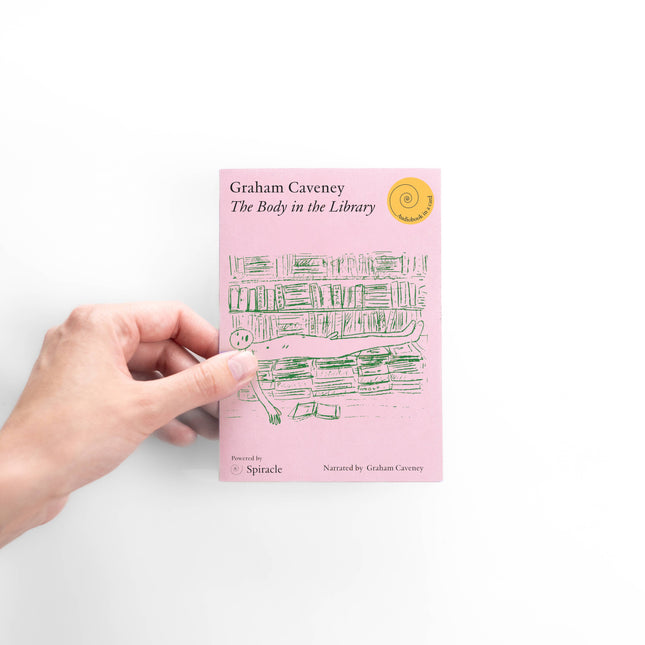 Graham Caveney
The Body in the Library
Audiobook in a card
Powered by
Spiracle
Narrated by Graham Caveney